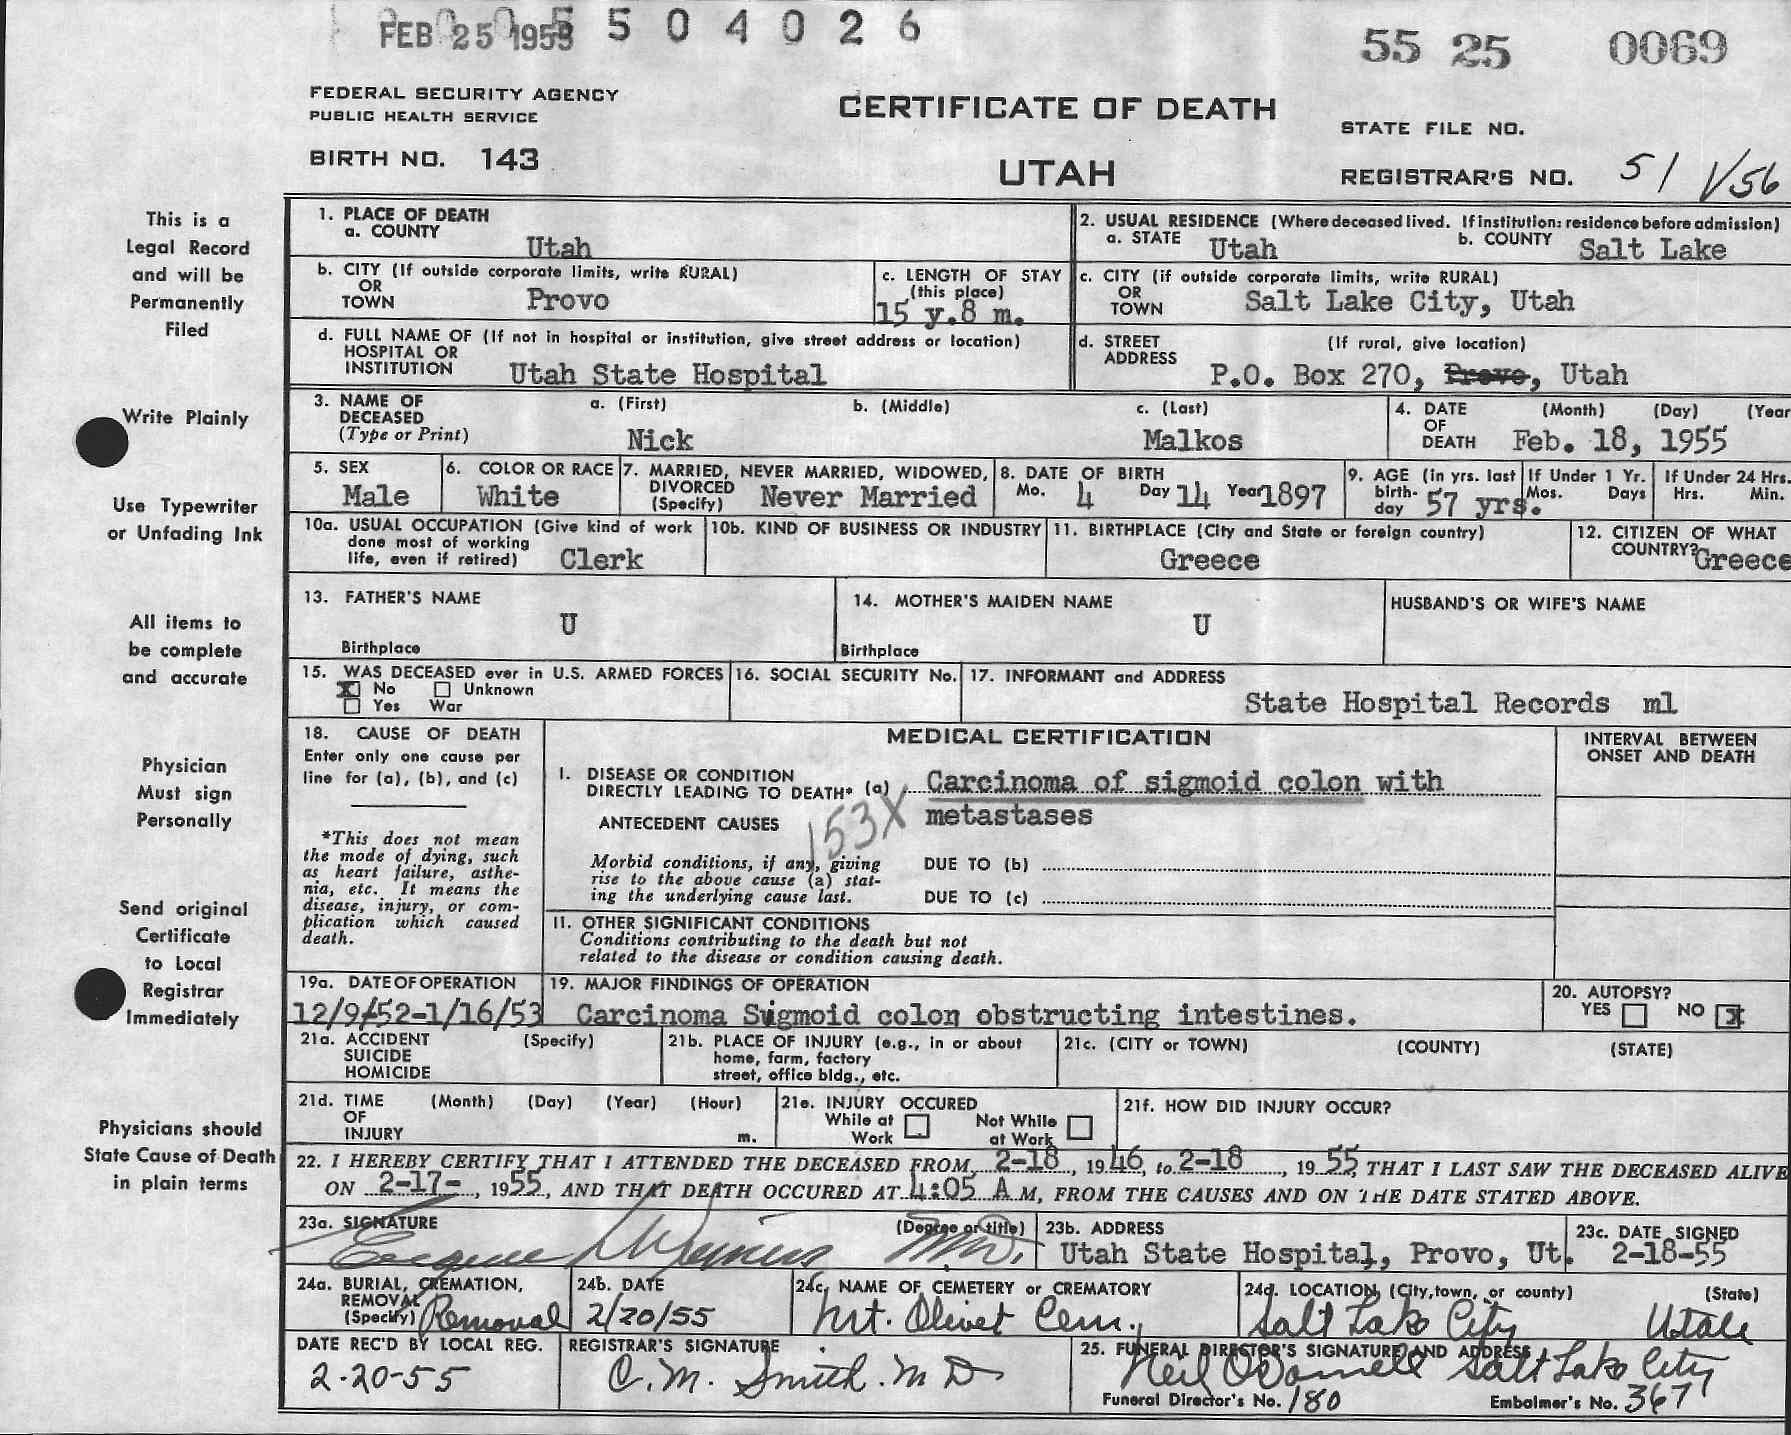 FEB 25 1955 5 0 4 0 2 6
55 25 0069
FEDERAL SECURITY AGENCY
PUBLIC HEALTH SERVICE
CERTIFICATE OF DEATH
STATE FILE NO.
BIRTH NO. 143
UTAH
REGISTRAR'S NO. 51 1/56
This is a
Legal Record
and will be
Permanently
Filed
Write Plainly
Use Typewriter
or Unfading Ink
All items to
be complete
and accurate
Physician
Must sign
Personally
Send original
Certificate
to Local
Registrar
Immediately
Physicians should
State Cause of Death
in plain terms
1. PLACE OF DEATH
a. COUNTY
Utah
2. USUAL RESIDENCE (Where deceased lived. If institution: residence before admission)
a. STATE Utah b. COUNTY Salt Lake
b. CITY (If outside corporate limits, write RURAL)
OR
TOWN Provo
c. LENGTH OF STAY
(this place)
15 y.8 m.
c. CITY (if outside corporate limits, write RURAL)
OR
TOWN Salt Lake City, Utah
d. FULL NAME OF (If not in hospital or institution, give street address or location)
HOSPITAL OR
INSTITUTION Utah State Hospital
d. STREET (If rural, give location)
ADDRESS
P.O. Box 270, Provo, Utah
3. NAME OF a. (First) b. (Middle) c. (Last)
DECEASED
(Type or Print) Nick Malkos
4. DATE (Month) (Day) (Year
OF
DEATH Feb. 18, 1955
5. SEX
Male
6. COLOR OR RACE
White
7. MARRIED, NEVER MARRIED, WIDOWED,
DIVORCED
(Specify) Never Married
8. DATE OF BIRTH
Mo. 4 Day 14 Year 1897
9. AGE (in yrs. last
birth-
day 57 yrs.
If Under 1 Yr.
Mos. Days
If Under 24 Hrs.
Hrs. Min.
10a. USUAL OCCUPATION (Give kind of work
done most of working
life, even if retired) Clerk
10b. KIND OF BUSINESS OR INDUSTRY
11. BIRTHPLACE (City and State or foreign country)
Greece
12. CITIZEN OF WHAT
COUNTRY? Greece
13. FATHER'S NAME
U
Birthplace
14. MOTHER'S MAIDEN NAME
U
Birthplace
HUSBAND'S OR WIFE'S NAME
15. WAS DECEASED ever in U.S. ARMED FORCES
X No Unknown
Yes War
16. SOCIAL SECURITY No.
17. INFORMANT and ADDRESS
State Hospital Records ml
18. CAUSE OF DEATH
Enter only one cause per
line for (a), (b), and (c)
*This does not mean
the mode of dying, such
as heart failure, asthe-
nia, etc. It means the
disease, injury, or com-
plication which caused
death.
MEDICAL CERTIFICATION
INTERVAL BETWEEN
ONSET AND DEATH
I. DISEASE OR CONDITION
DIRECTLY LEADING TO DEATH* (a) Carcinoma of sigmoid colon with
metastases
153X
ANTECEDENT CAUSES
Morbid conditions, if any, giving
rise to the above cause (a) stat-
ing the underlying cause last.
DUE TO (b)
DUE TO (c)
II. OTHER SIGNIFICANT CONDITIONS
Conditions contributing to the death but not
related to the disease or condition causing death.
19a. DATE OF OPERATION
12/9/52-1/16/53
19. MAJOR FINDINGS OF OPERATION
Carcinoma Sigmoid colon obstructing intestines.
20. AUTOPSY?
YES NO X
21a. ACCIDENT (Specify)
SUICIDE
HOMICIDE
21b. PLACE OF INJURY (e.g., in or about
home, farm, factory
street, office bldg., etc.
21c. (CITY or TOWN) (COUNTY) (STATE)
21d. TIME (Month) (Day) (Year) (Hour)
OF
INJURY m.
21e. INJURY OCCURED
While at Not While
Work at Work
21f. HOW DID INJURY OCCUR?
22. I HEREBY CERTIFY THAT I ATTENDED THE DECEASED FROM 2-18, 1946, to 2-18, 1955, THAT I LAST SAW THE DECEASED ALIVE
ON 2-17-, 1955, AND THAT DEATH OCCURED AT 4:05 A M, FROM THE CAUSES AND ON THE DATE STATED ABOVE.
23a. SIGNATURE (Degree or title)
Eugene M.D.
23b. ADDRESS
Utah State Hospital, Provo, Ut.
23c. DATE SIGNED
2-18-55
24a. BURIAL, CREMATION,
REMOVAL
(Specify) Removal
24b. DATE
2/20/55
24c. NAME OF CEMETERY or CREMATORY
Mt. Olivet Cem.,
24d. LOCATION (City, town, or county) (State)
Salt Lake City Utah
DATE REC'D BY LOCAL REG.
2-20-55
REGISTRAR'S SIGNATURE
C. M. Smith. M D
25. FUNERAL DIRECTOR'S SIGNATURE AND ADDRESS
Neil O'Donnell Salt Lake City
Funeral Director's No. 180 Embalmer's No. 367